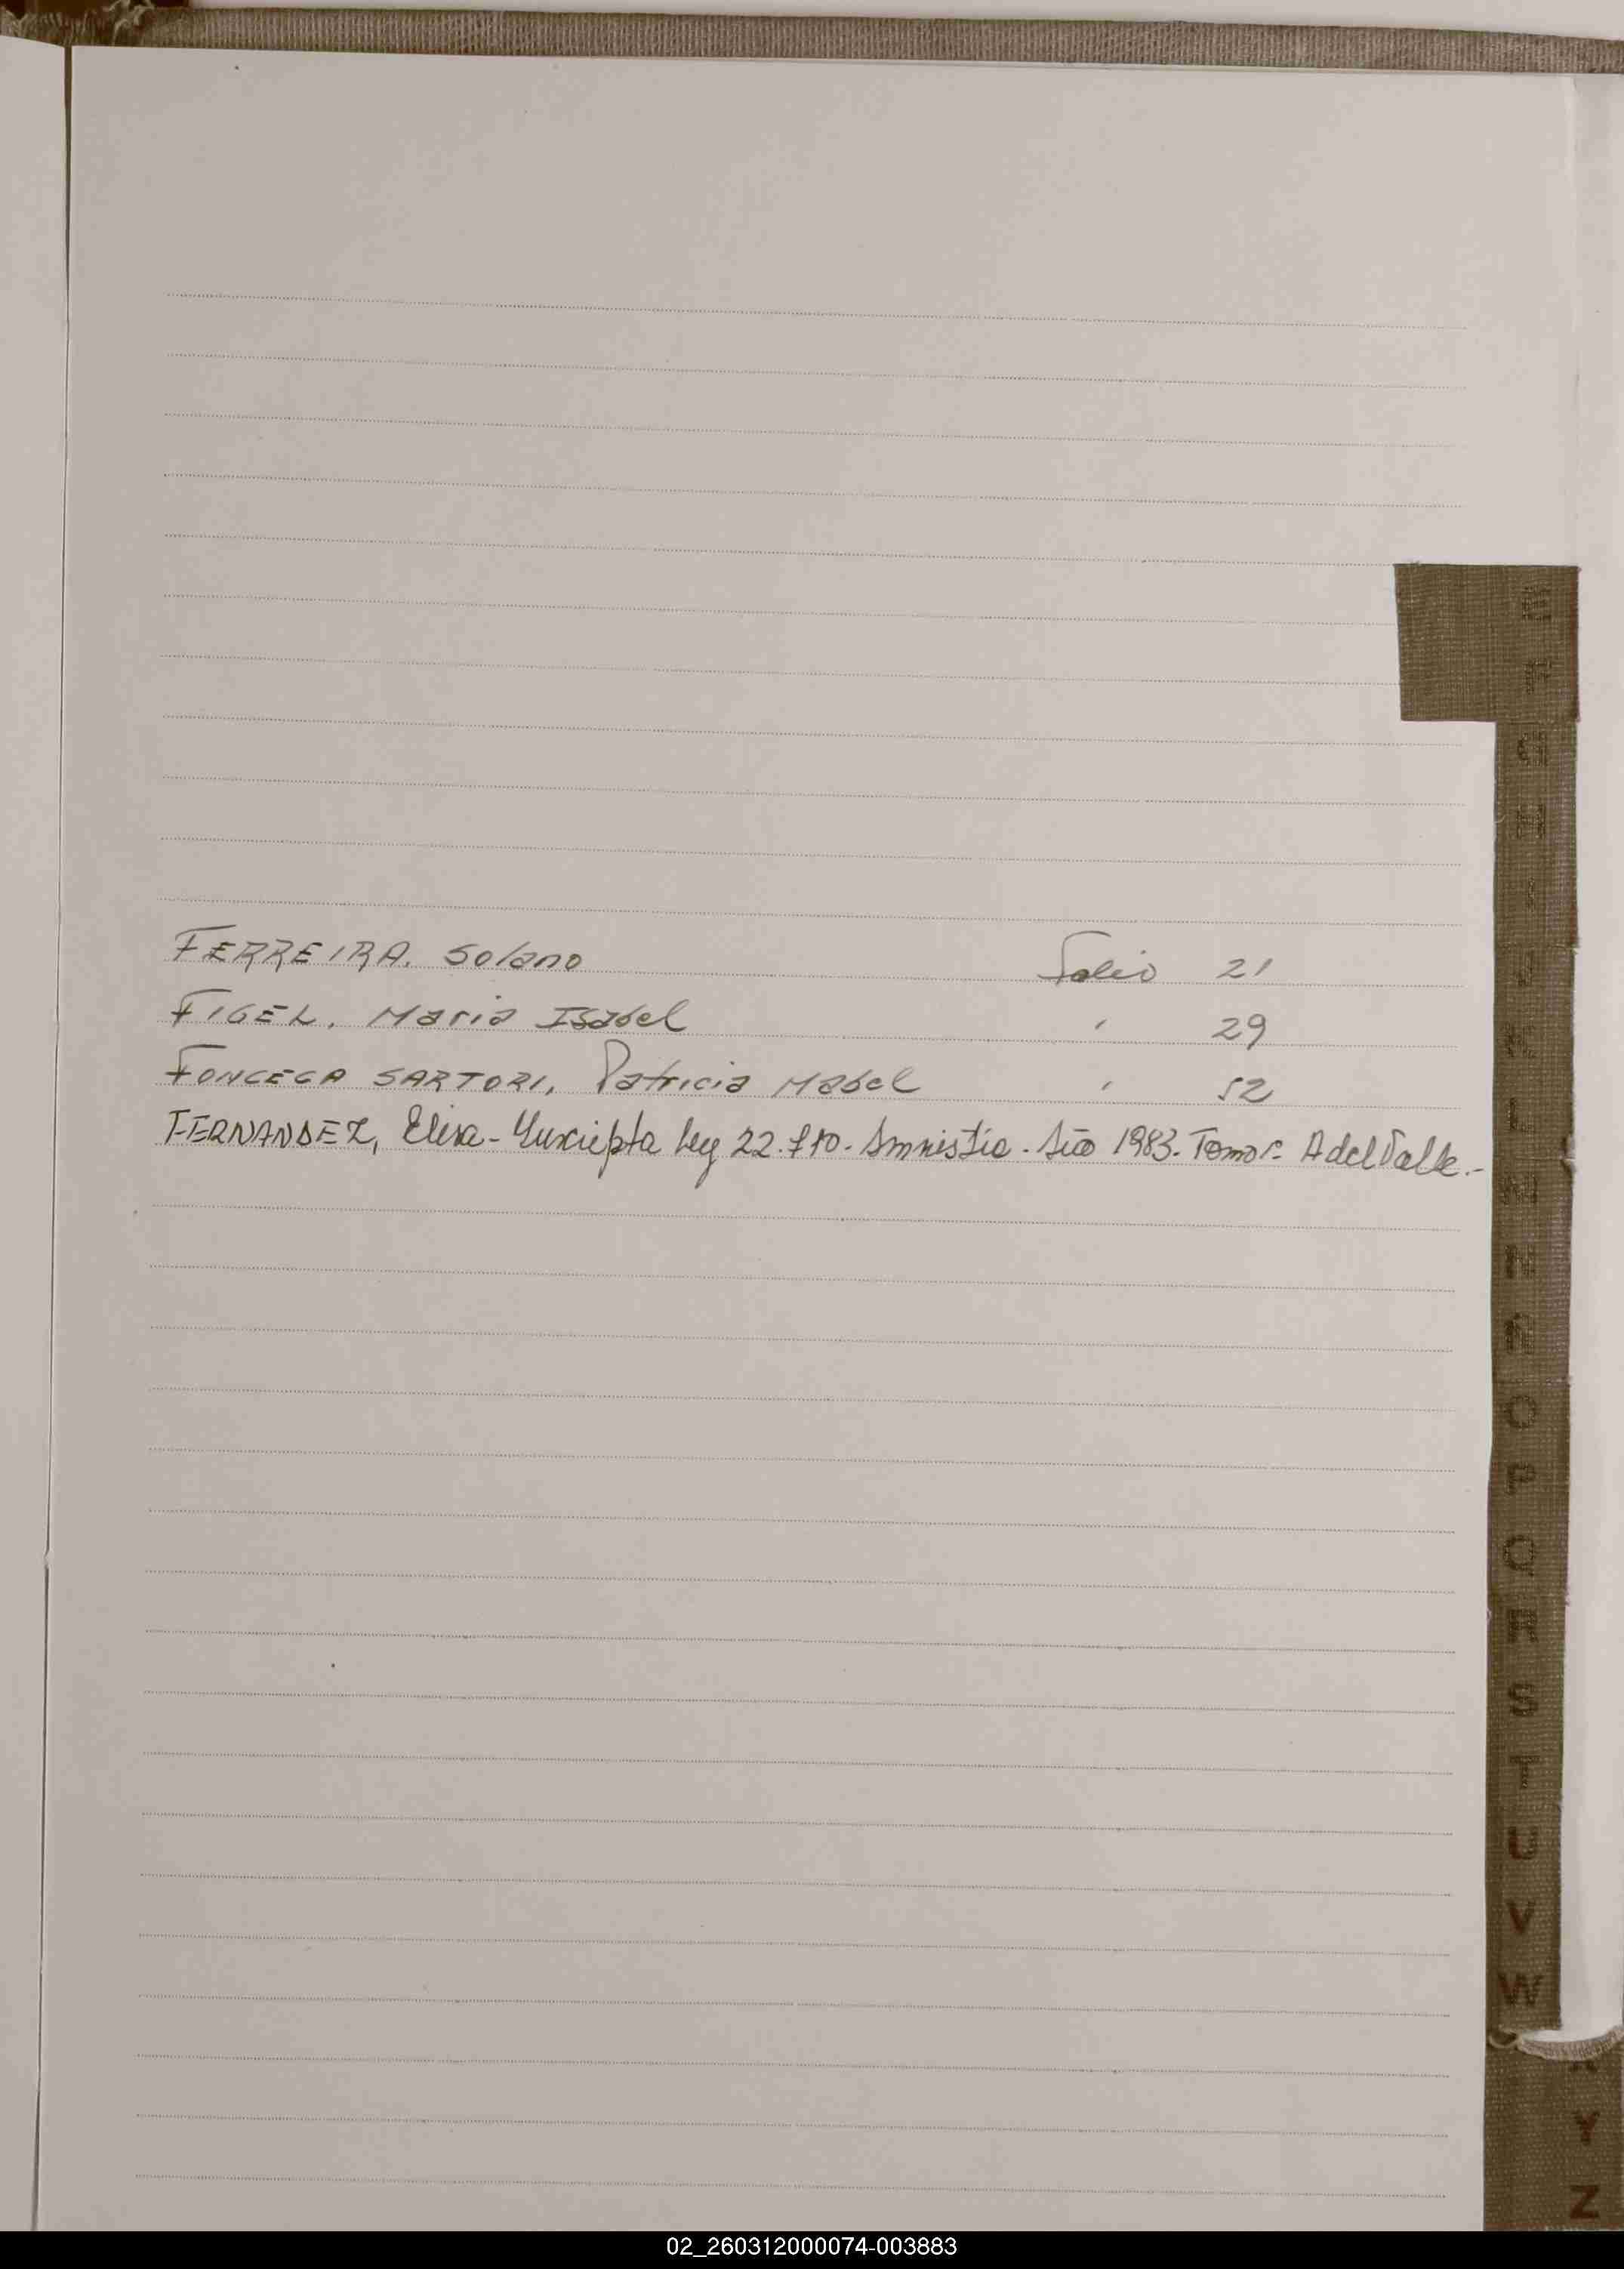 E
F
G
H
FERREIRA. Solano Folio 21
FIGEL. Maria Isabel " 29
FONCECA SARTORI, Patricia Mabel " 52
FERNANDEZ, Elisa - Ley 22. - Amnistia - Año 1983. Tomo Adel Valle.-
M
N
O
P
Q
R
S
T
U
V
W
X
Y
Z
02_260312000074-003883